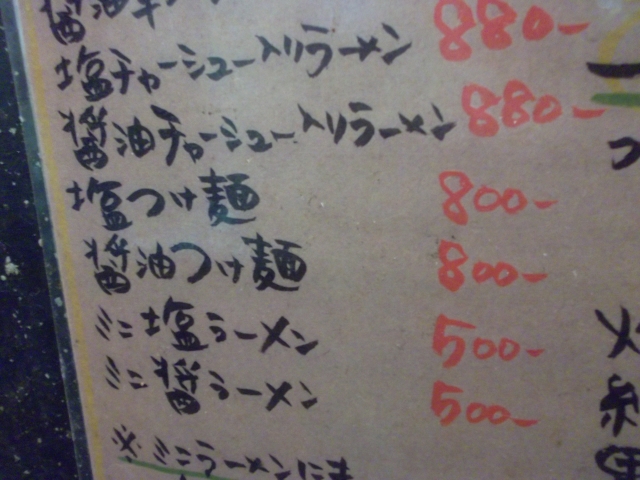 醤油チ
塩チャーシュー入りラーメン 880-
醤油チャーシュー入りラーメン 880-
塩つけ麺 800-
醤油つけ麺 800-
ミニ塩ラーメン 500-
ミニ醤ラーメン 500-
※ミニラーメンには